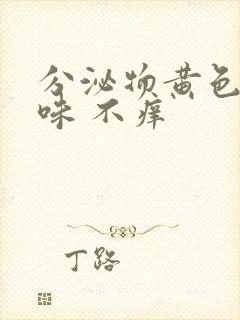 分泌物黄色
味 不痒
丁路